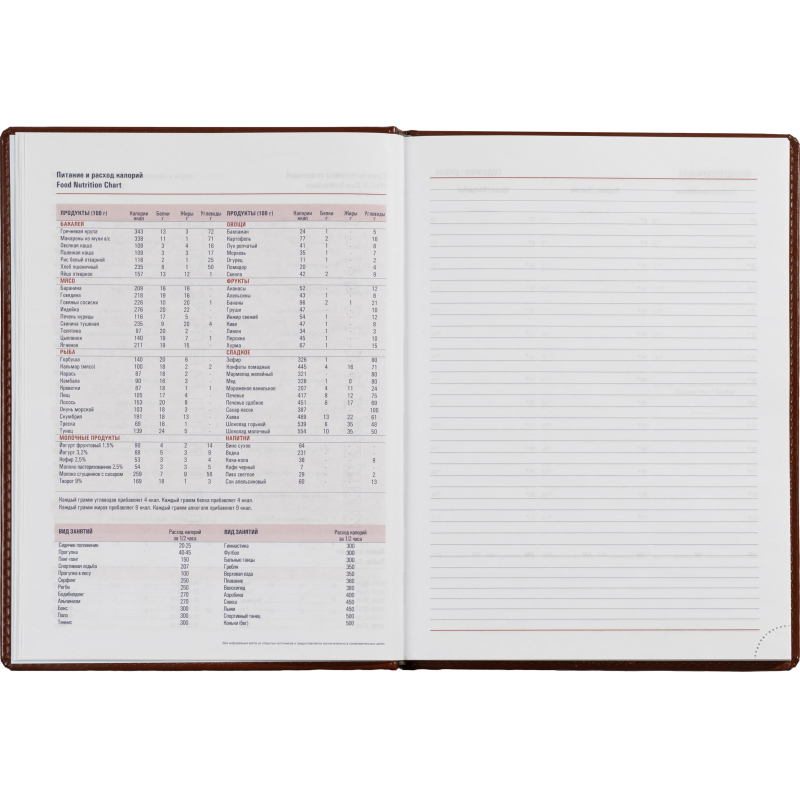 Питание и расход калорий
Food Nutrition Chart
ПРОДУКТЫ (100 г) Калории ккал Белки г Жиры г Углеводы г ПРОДУКТЫ (100 г) Калории ккал Белки г Жиры г Углеводы г
БАКАЛЕЯ ОВОЩИ
Гречневая крупа 343 13 3 72 Баклажан 24 1 - 5
Макароны из муки в/с 338 11 1 71 Картофель 77 2 - 16
Овсяная каша 109 3 4 16 Лук репчатый 41 1 - 8
Пшенная каша 109 3 3 17 Морковь 35 1 - 7
Рис белый отварной 116 2 1 25 Огурец 11 1 - 2
Хлеб пшеничный 235 8 1 50 Помидор 20 - - 4
Яйцо отварное 157 13 12 1 Свекла 42 2 - 9
МЯСО ФРУКТЫ
Баранина 209 16 16 - Ананасы 52 - - 12
Говядина 218 19 16 - Апельсины 43 1 - 8
Говяжьи сосиски 226 10 20 1 Бананы 96 2 1 21
Индейка 276 20 22 - Груши 47 - - 10
Печень курицы 116 17 5 - Инжир свежий 54 1 - 12
Свинина тушеная 235 9 20 4 Киви 47 1 - 8
Телятина 97 20 2 - Лимон 34 1 - 3
Цыпленок 140 19 7 1 Персик 45 1 - 10
Ягненок 211 18 16 - Хурма 67 1 - 15
РЫБА СЛАДКОЕ
Горбуша 140 20 6 - Зефир 326 1 - 80
Кальмар (мясо) 100 18 2 2 Конфеты помадные 445 4 16 71
Карась 87 18 2 - Мармелад желейный 321 - - 80
Камбала 90 16 3 - Мед 328 1 0 80
Креветки 87 18 1 1 Мороженое ванильное 207 4 11 24
Лещ 105 17 4 - Печенье 417 8 12 75
Лосось 153 20 8 - Печенье сдобное 451 6 17 69
Окунь морской 103 18 3 - Сахар-песок 387 - - 100
Скумбрия 191 18 13 - Халва 469 13 22 61
Треска 69 16 1 - Шоколад горький 539 6 35 48
Тунец 139 24 5 - Шоколад молочный 554 10 35 50
МОЛОЧНЫЕ ПРОДУКТЫ НАПИТКИ
Йогурт фруктовый 1,5% 90 4 2 14 Вино сухое 64
Йогурт 3,2% 68 5 3 9 Водка 231
Кефир 2,5% 53 3 3 4 Кока-кола 36 - - 9
Молоко пастеризованное 2,5% 54 3 3 5 Кофе черный 7
Молоко сгущенное с сахаром 259 7 9 56 Пиво светлое 29 - - 2
Творог 9% 169 18 1 3 Сок апельсиновый 60 - - 13
Каждый грамм углеводов прибавляет 4 ккал. Каждый грамм белка прибавляет 4 ккал.
Каждый грамм жиров прибавляет 9 ккал. Каждый грамм алкоголя прибавляет 9 ккал.
ВИД ЗАНЯТИЙ Расход калорий за 1/2 часа ВИД ЗАНЯТИЙ Расход калорий за 1/2 часа
Сидячее положение 20-25 Гимнастика 300
Прогулка 40-45 Футбол 300
Пинг-понг 150 Бальные танцы 300
Спортивная ходьба 207 Гребля 350
Прогулка в лесу 100 Верховая езда 350
Серфинг 250 Плавание 380
Регби 250 Велосипед 380
Бодибилдинг 270 Аэробика 400
Альпинизм 270 Сквош 450
Бокс 300 Лыжи 450
Поло 300 Спортивный танец 500
Теннис 300 Коньки (бег) 500